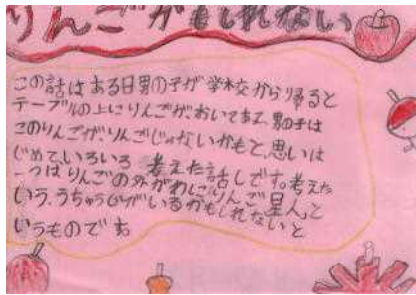 りんごかもしれない
この話はある日男の子が学校から帰ると
テーブルの上にりんごが、おいてあって、男の子は
このりんごが、りんごじゃないかもと、思いは
じめて、いろいろ考えた話しです。考えた
一つはりんごの外がわにりんご星人と
いう、うちゅう人がいるかもしれないと
いうものです